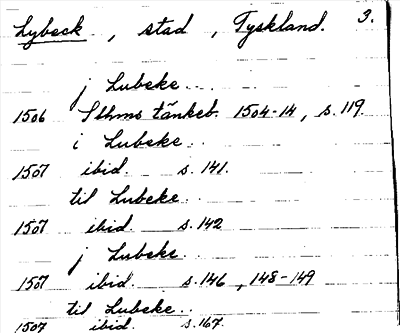 Lybeck, stad, Tyskland. 3.
j Lubeke..
1506 Sthms tänkeb. 1504-14, s. 119.
i Lubeke..
1507 ibid. s. 141.
til Lubeke..
1507 ibid. s. 142
j Lubeke..
1507 ibid. s. 146, 148-149
til Lubeke..
1507 ibid. s. 167.